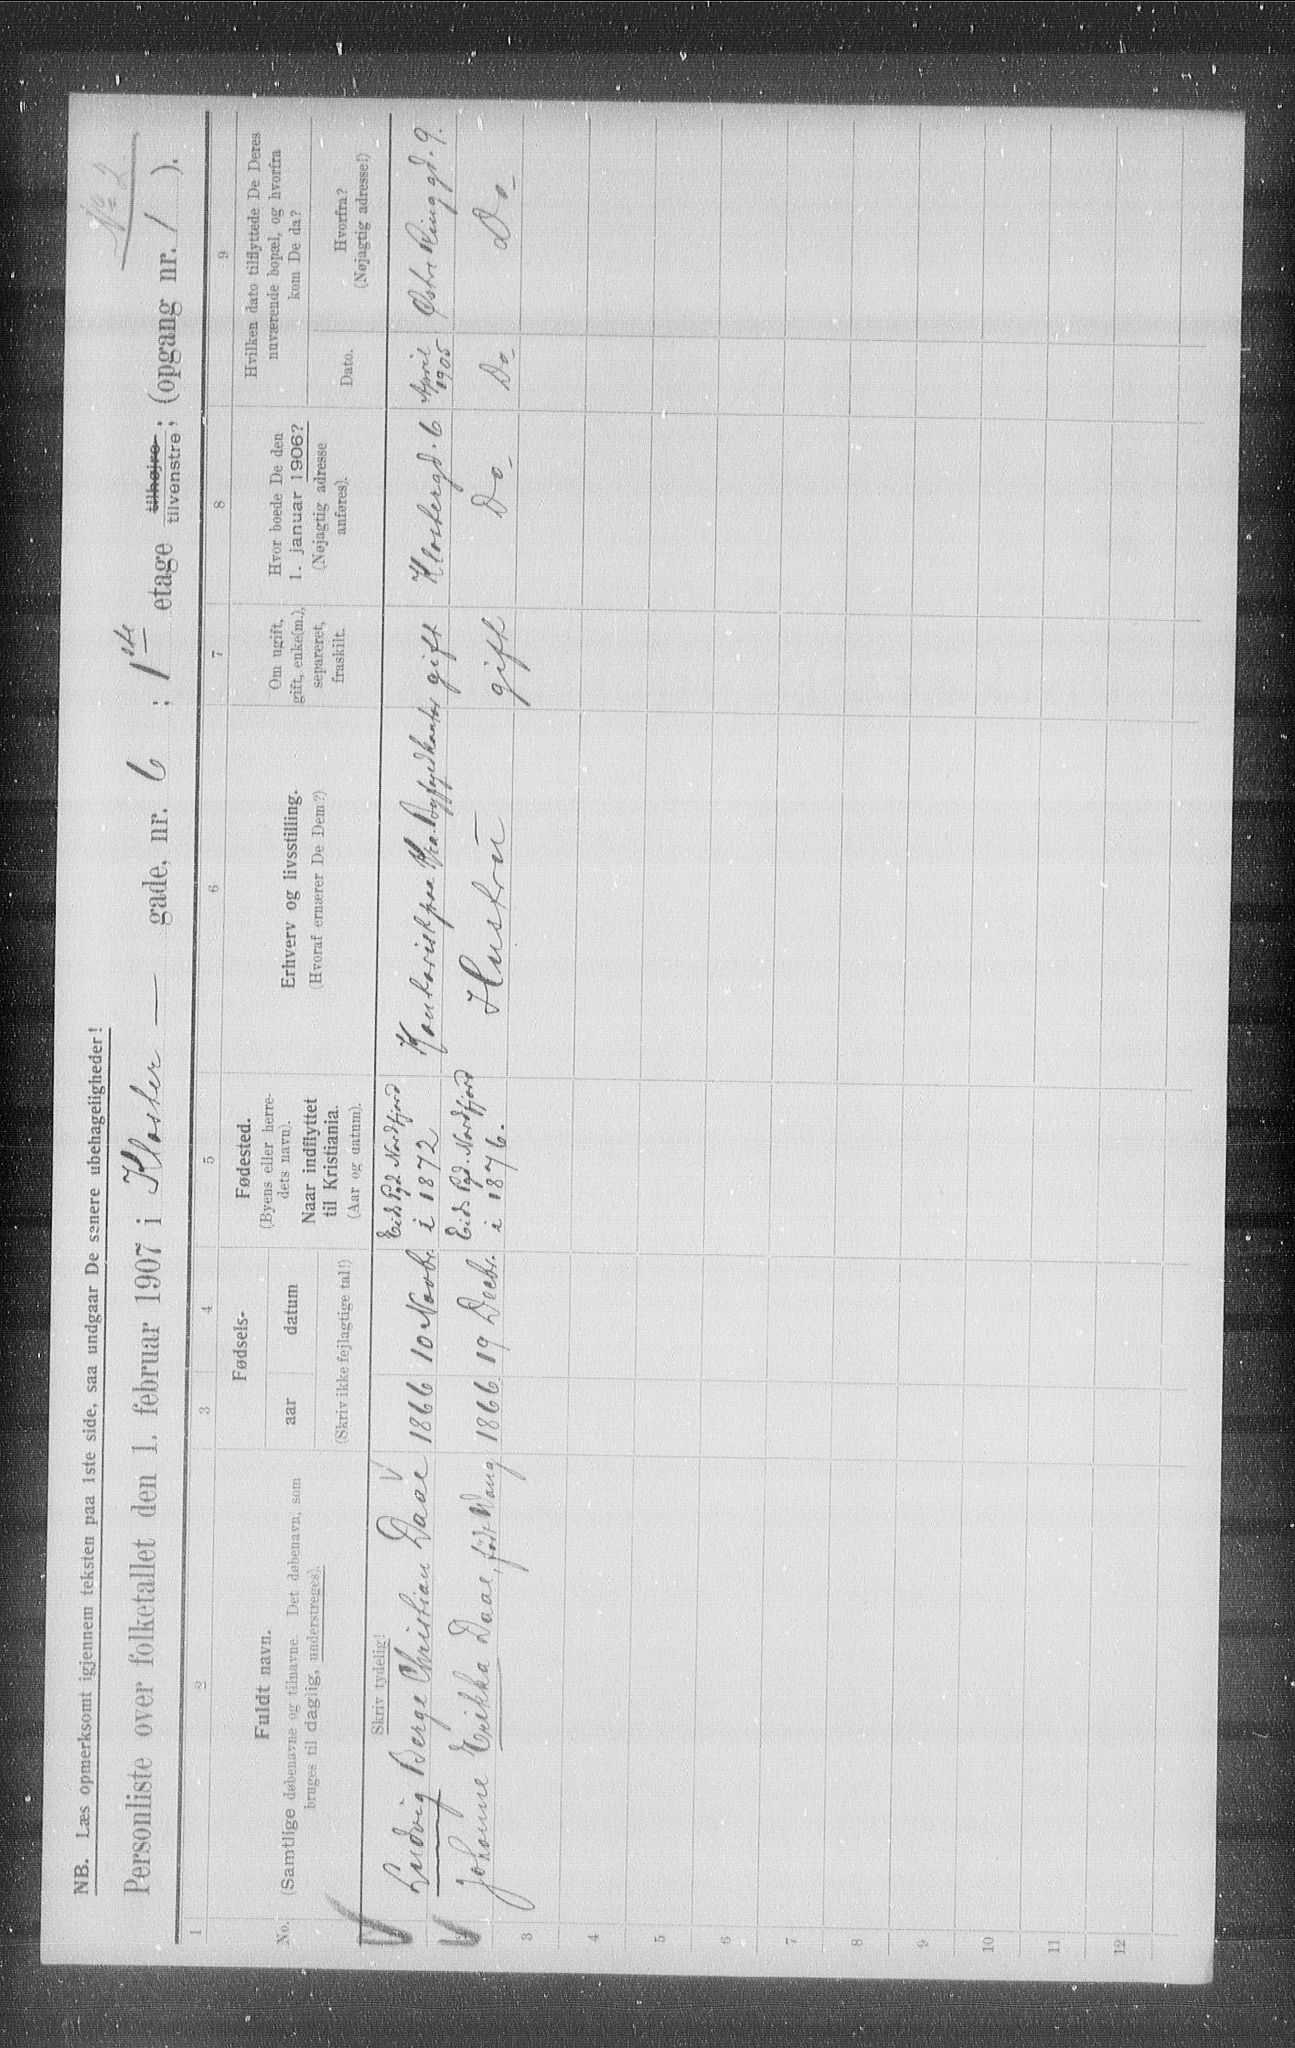 No 2.
NB. Læs opmerksomt igjennem teksten paa 1ste side, saa undgaar De senere ubehageligheder!
Personliste over folketallet den 1. februar 1907 i Kloster — gade, nr. 6 ; 1ste etage tilhøjre tilvenstre; (opgang nr. 1 ).
1 2 3 4 5 6 7 8 9
No.
Fuldt navn.
(Samtlige døbenavne og tilnavne. Det døbenavn, som
bruges til daglig, understreges).
Skriv tydelig!
Fødsels-
aar datum
(Skriv ikke fejlagtige tal!)
Fødested.
(Byens eller herre-
dets navn).
Naar indflyttet
til Kristiania.
(Aar og datum).
Erhverv og livsstilling.
(Hvoraf ernærer De Dem?)
Om ugift,
gift, enke(m.),
separeret,
fraskilt.
Hvor boede De den
1. januar 1906?
(Nøjagtig adresse
anføres).
Hvilken dato tilflyttede De Deres
nuværende bopæl, og hvorfra
kom De da?
Dato.
Hvorfra?
(Nøjagtig adresse!)
Ludvig Berge Christian Daae 1866 10 Novbr. Eids Pgd. Nordfjord i 1872 Kontorist paa gift Klostergd. 6 April 1905 Østre Ringgd. 9.
Johanne Erikka Daae, født Waug 1866 19 Decbr. Eids Pgd. Nordfjord i 1876. Hustru gift Do_ Do_ Do_
3
4
5
6
7
8
9
10
11
12